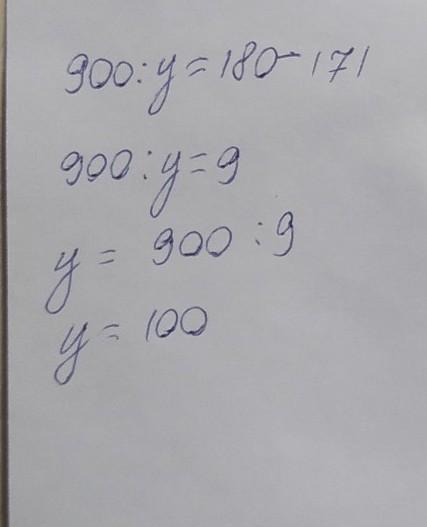 900:y=180-171
900:y=9
y = 900:9
y = 100